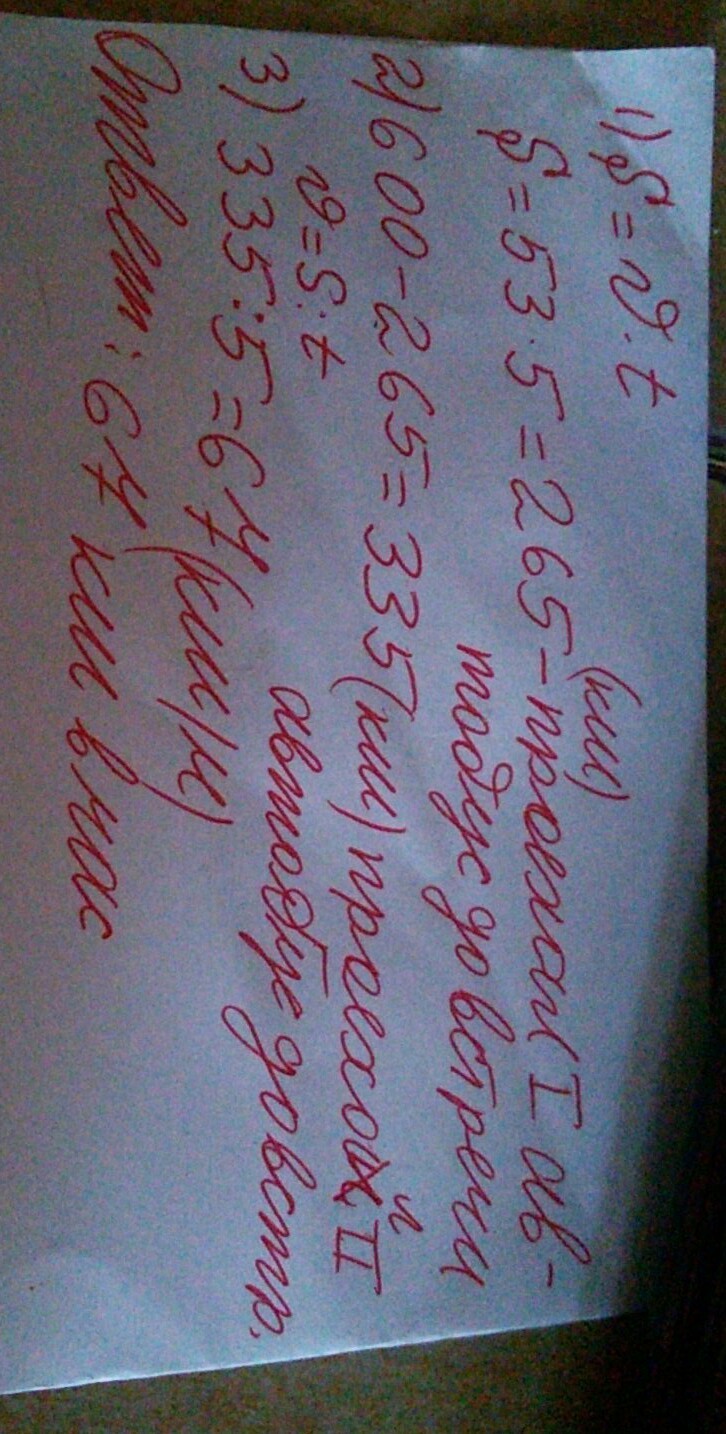 1) S = v · t
(км)
S = 53 · 5 = 265 - проехал I ав-
тобус до встречи
2) 600 - 265 = 335 (км) проехал II
v = S : t автобус до встр.
3) 335 : 5 = 67 (км/ч)
Ответ: 67 км в час